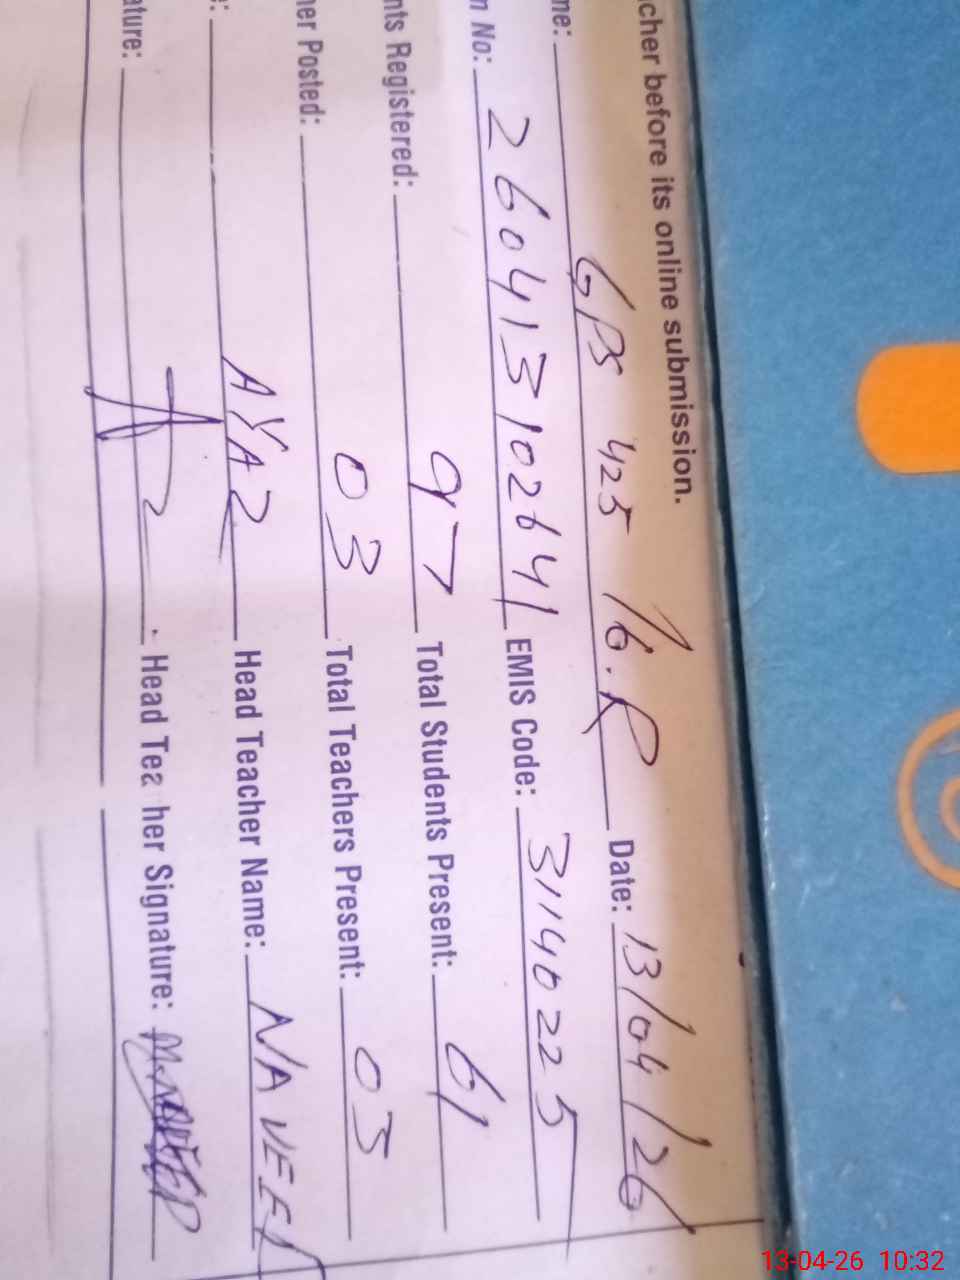 cher before its online submission.
me: GPS 425 16.R Date: 13/04/26
n No: 260413102641 EMIS Code: 31140225
nts Registered: 97 Total Students Present: 61
her Posted: 03 Total Teachers Present: 03
e: AYAZ Head Teacher Name: NAVEED
ature: Head Tea her Signature:
13-04-26 10:32